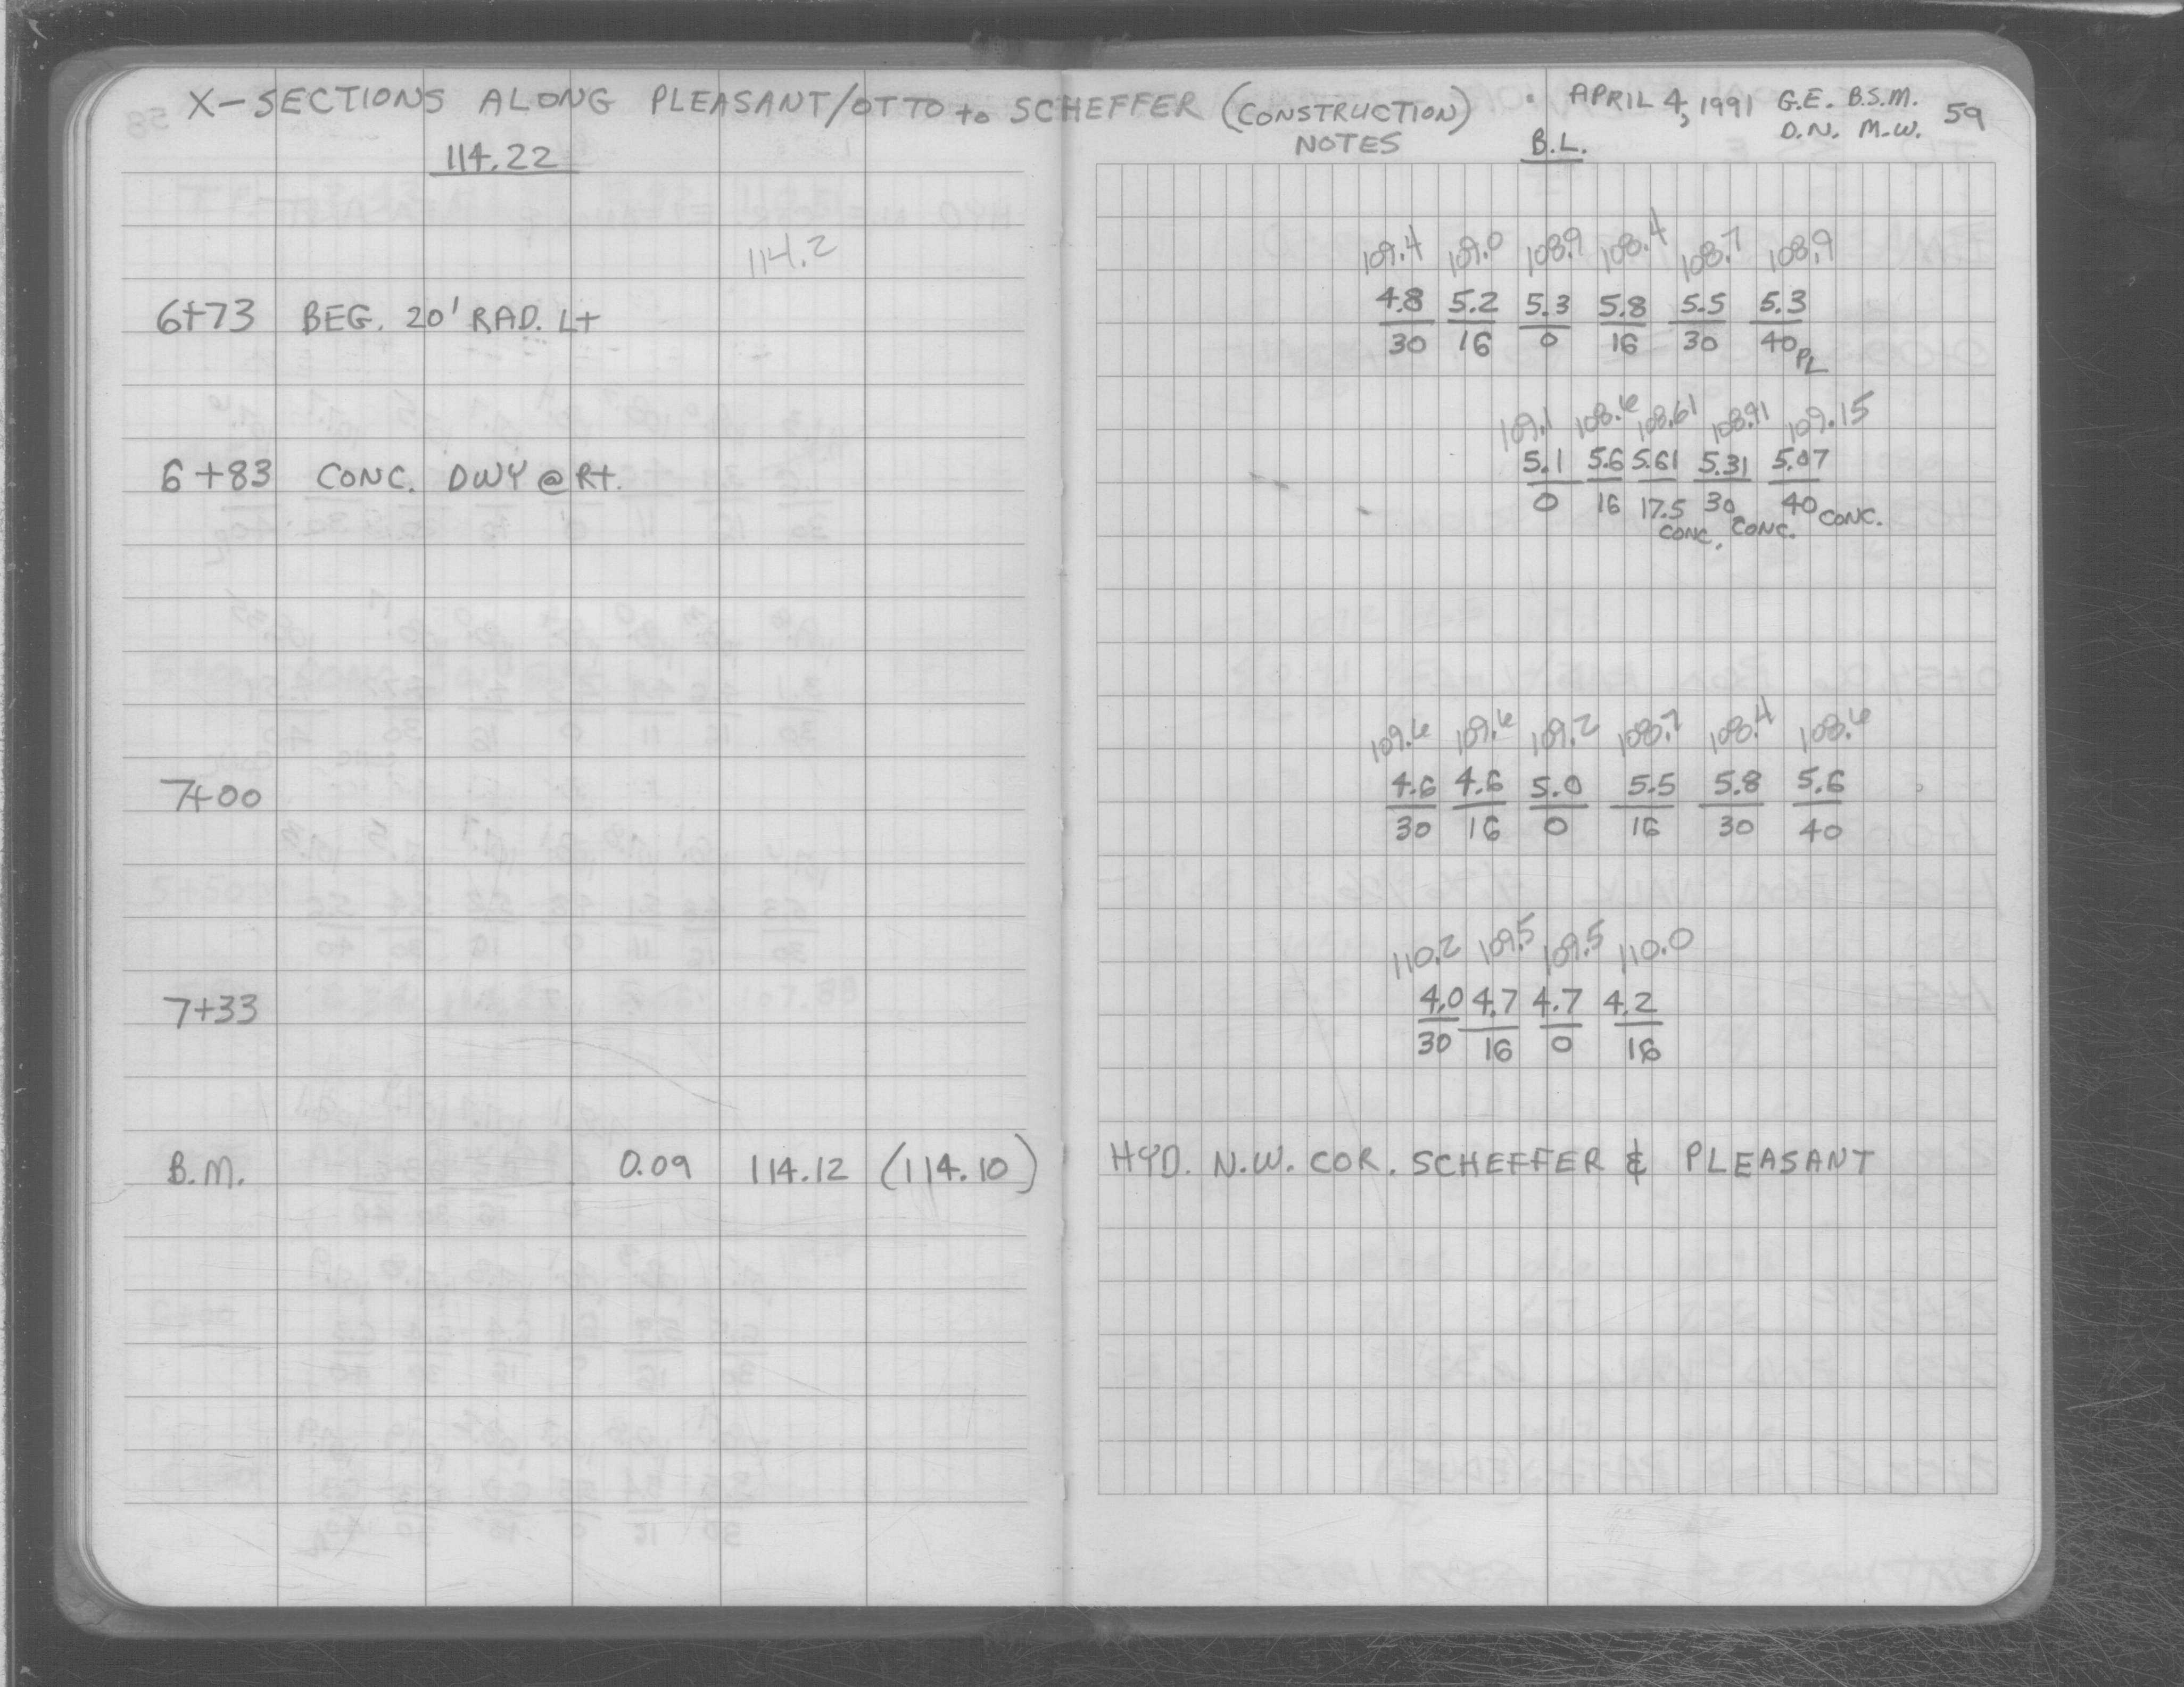 X-SECTIONS ALONG PLEASANT/OTTO to SCHEFFER (CONSTRUCTION) NOTES
APRIL 4, 1991 G.E. B.S.M.
D.N. M.W.
59
114.22
B.L.
114.2
109.4 109.0 108.9 108.4 108.7 108.9
6+73 BEG. 20' RAD. Lt 4.8 5.2 5.3 5.8 5.5 5.3
30 16 0 16 30 40 PL
109.1 108.6 108.61 108.91 109.15
6+83 CONC. DWY @ Rt. 5.1 5.6 5.61 5.31 5.07
0 16 17.5 30 40 CONC.
CONC. CONC.
109.6 109.6 109.2 108.7 108.4 108.6
7+00 4.6 4.6 5.0 5.5 5.8 5.6
30 16 0 16 30 40
110.2 109.5 109.5 110.0
7+33 4.0 4.7 4.7 4.2
30 16 0 16
B.M. 0.09 114.12 (114.10) HYD. N.W. COR. SCHEFFER & PLEASANT